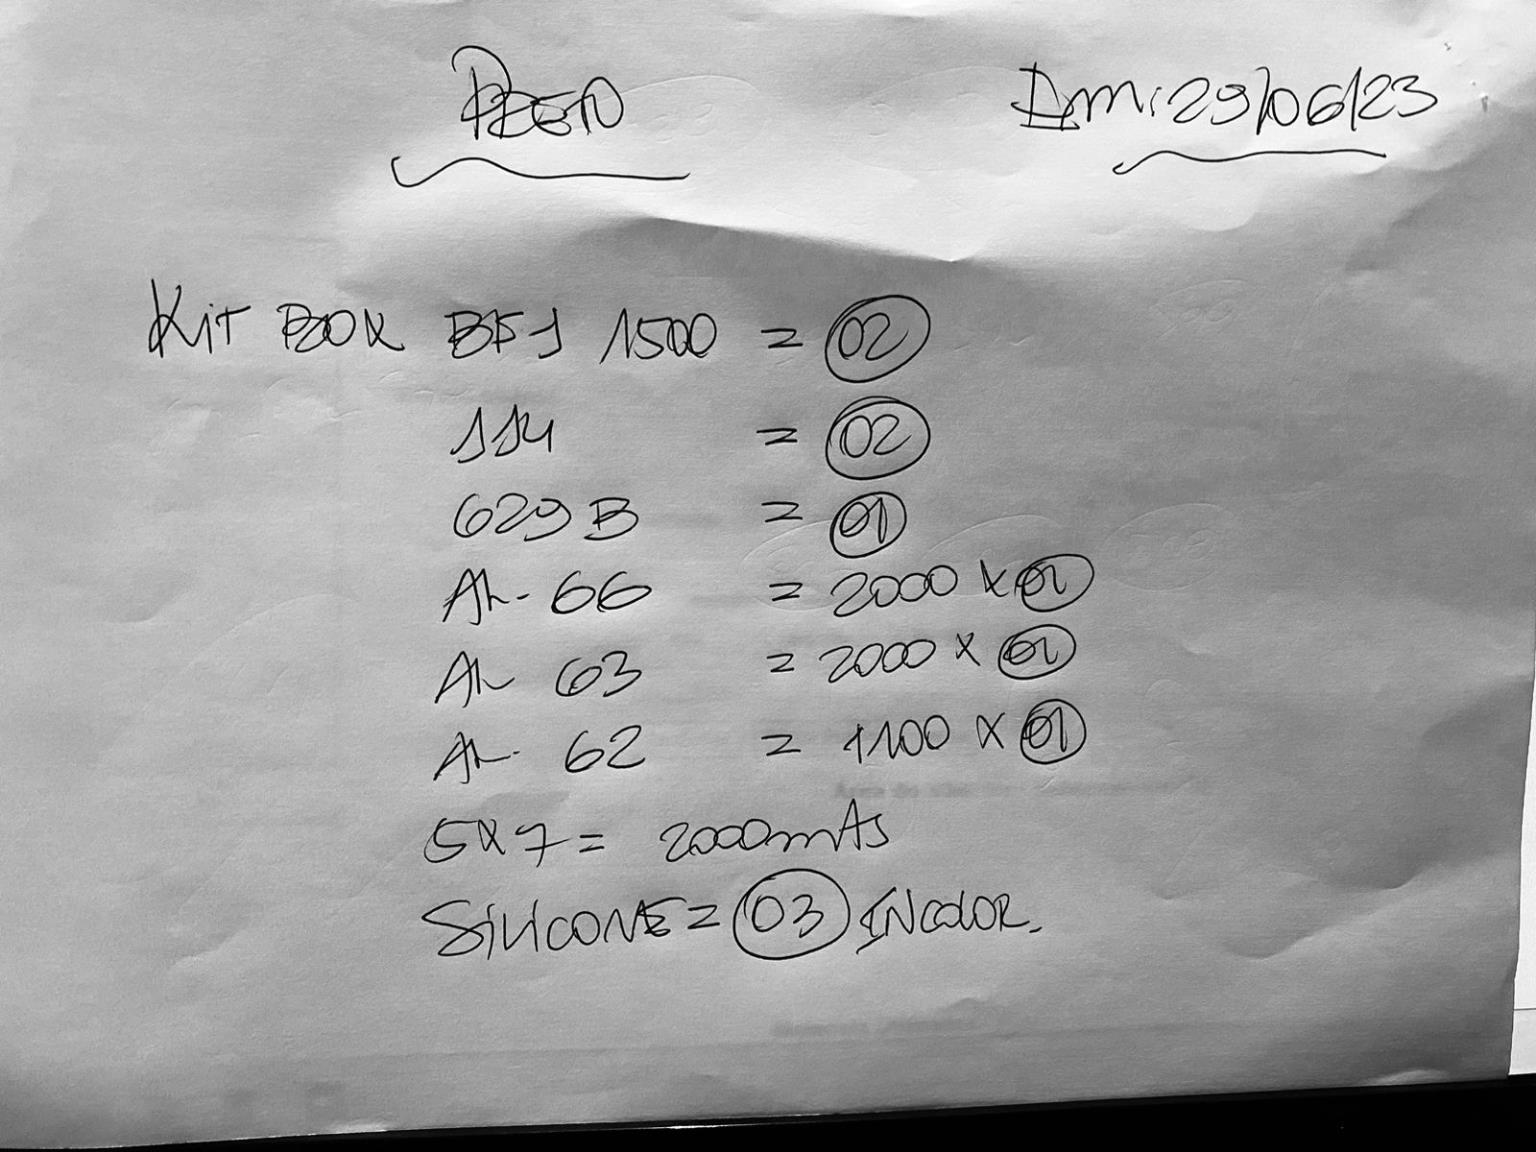 Em: 29/06/23
Kit BOX BF1 1500 = 02
114 = 02
629 B = 01
AL- 66 = 2000 x 01
AL 63 = 2000 x 01
AL- 62 = 1100 x 01
5x7 = 2000mts
SiliCONE = 03 INCOLOR.